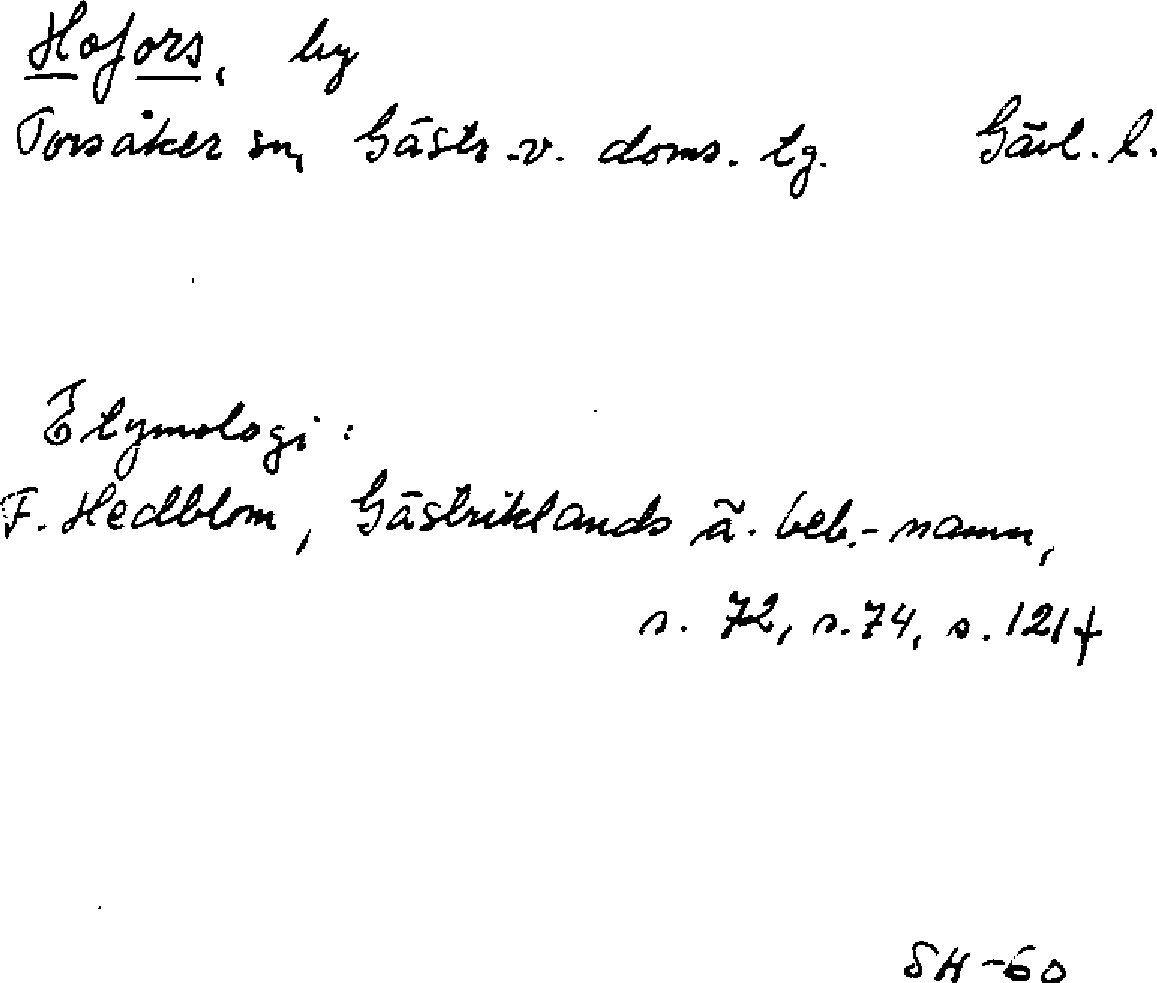 Hofors, by
Torsåker sn, Gästr.v. doms. tg. Gävl. l.
Etymologi:
F. Hedblom, Gästriklands ä. beb.-namn,
s. 72, s. 74, s. 121f
SH-60